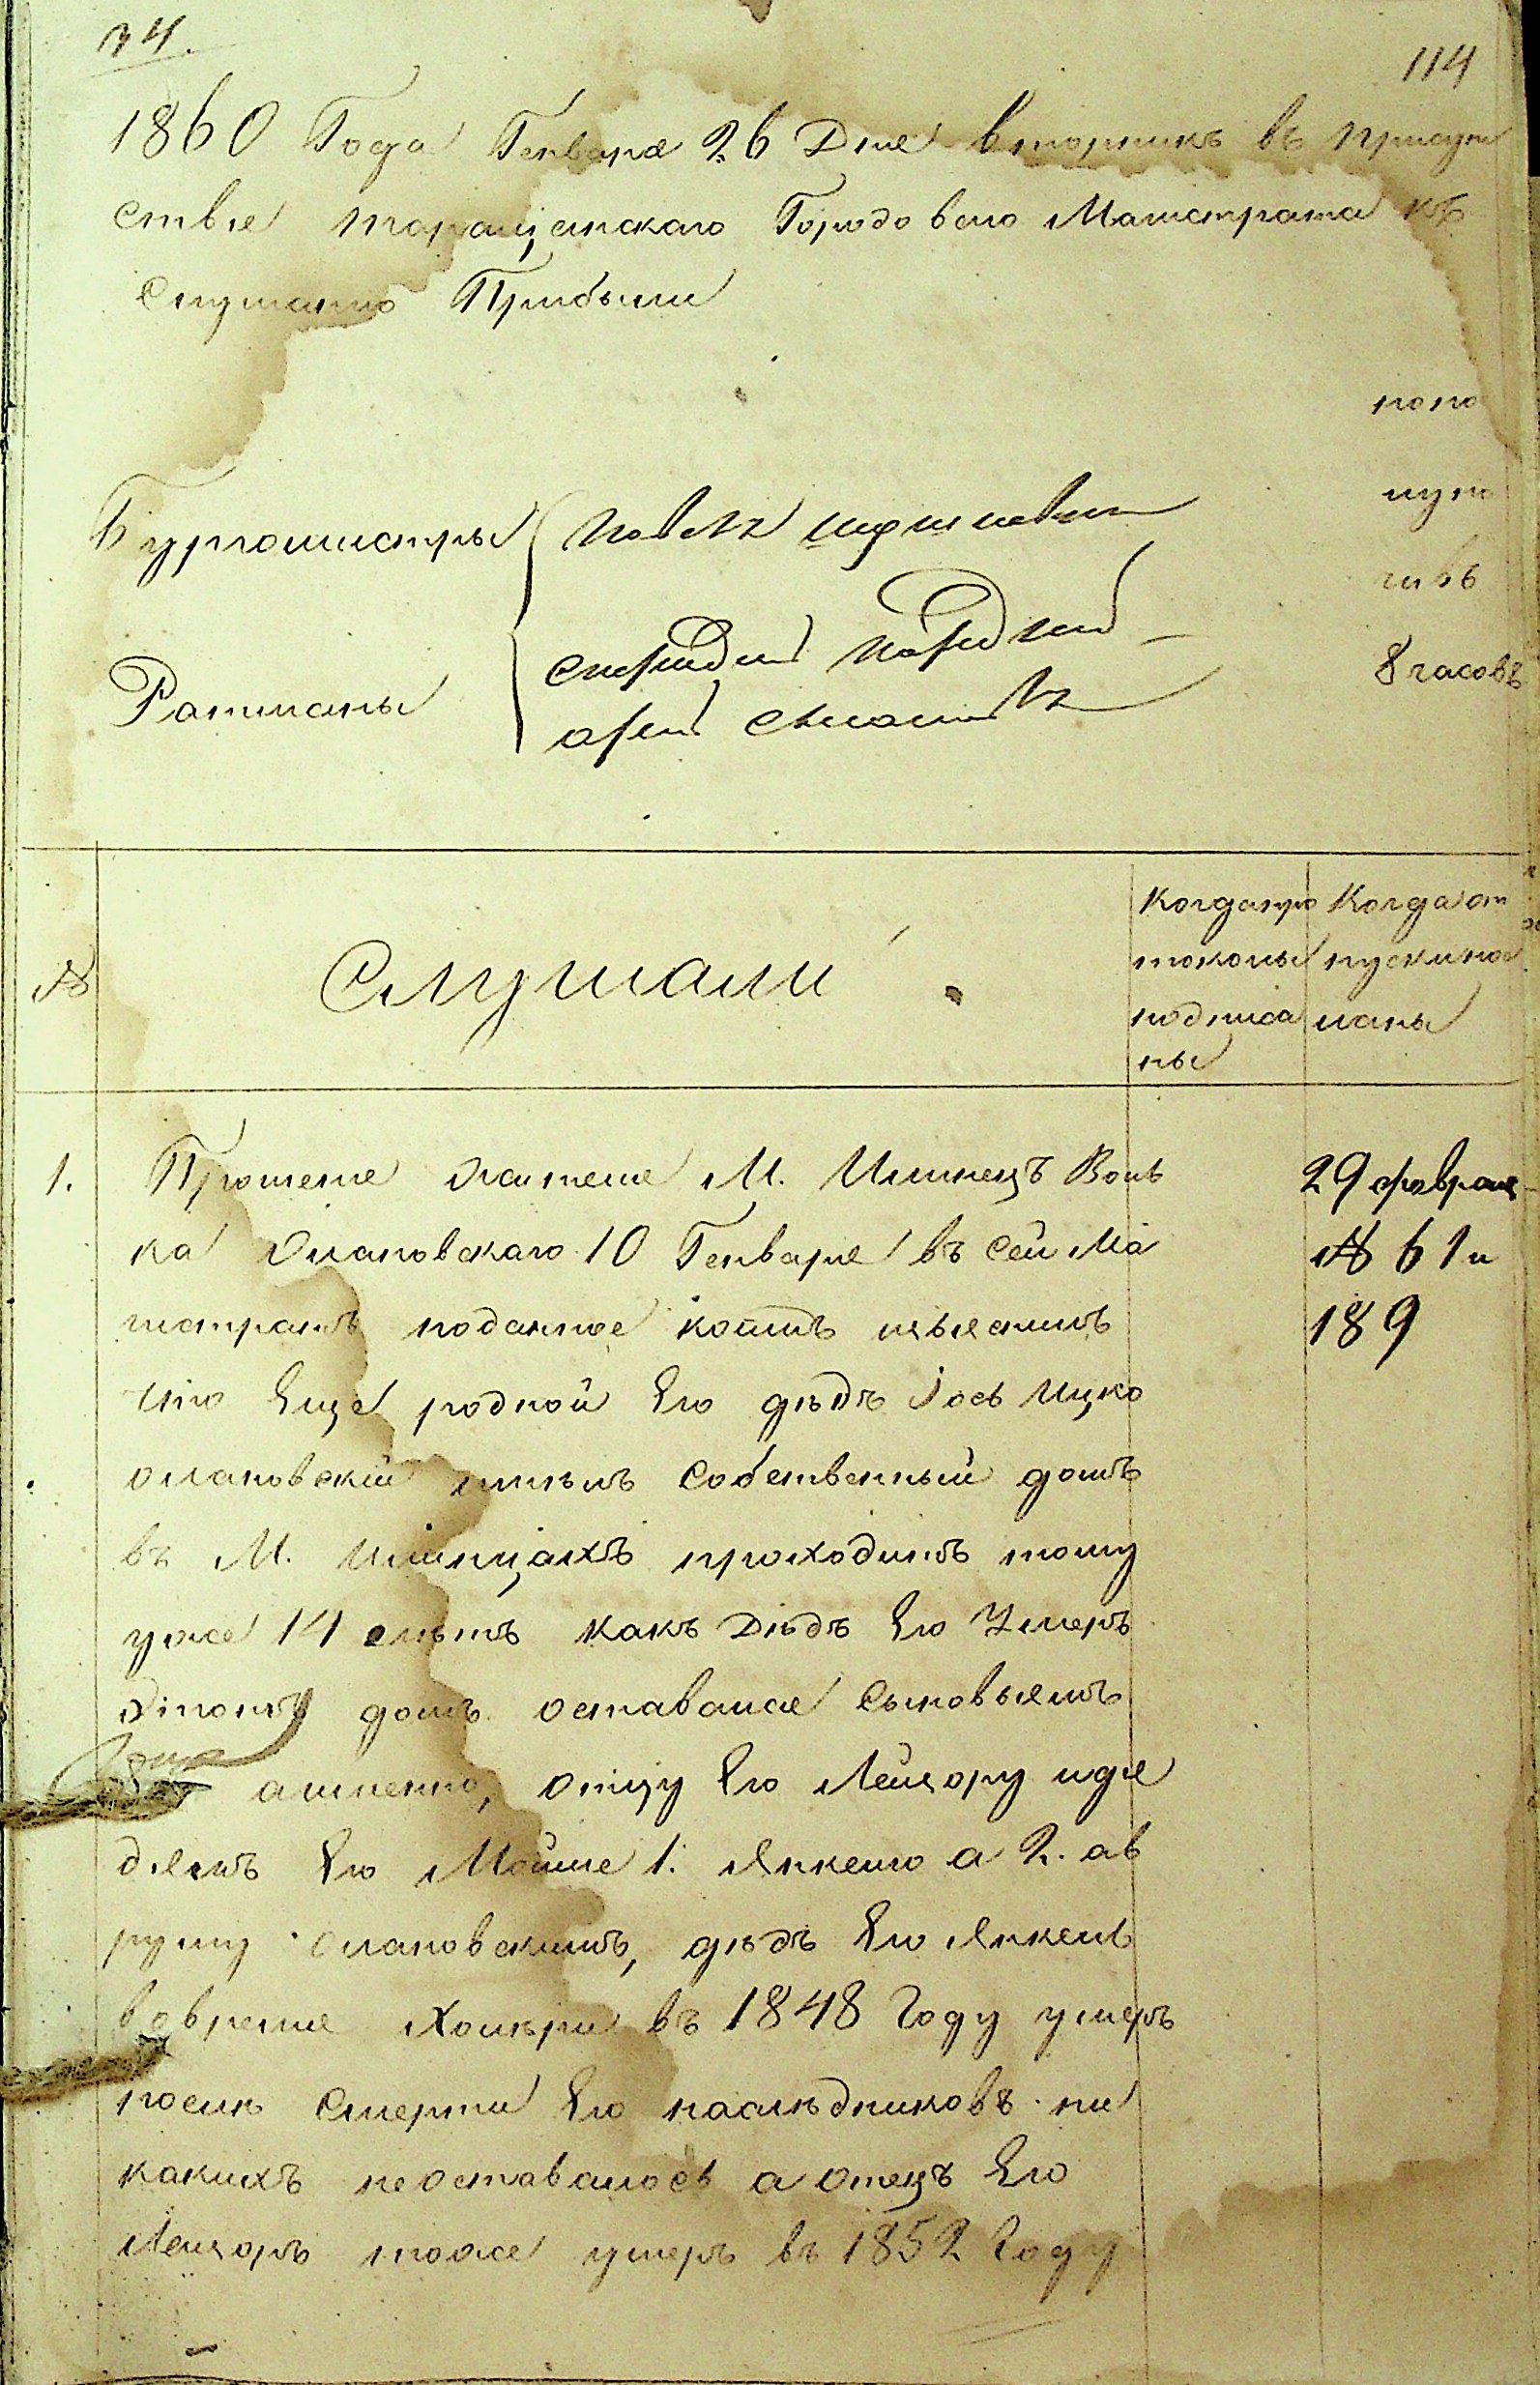 34.
114
1860 Года Генваря 26 Дня вторникъ въ присут
ствіе таращанского Городового Магистрата къ
слушанію Прибыли
попо
луно
чивъ
8 часовъ
Бургомистры
Ратманы
№
Слушали
Когда про
токолы
подписа
ны
Когда от
пуски пос
ланы
1.
Прошеніе жителя М. Ильинецъ Воль
ка Олановскаго 10 Генваря въ сей Ма
гистратъ поданное коимъ изъяснилъ
что Еще родной Его дѣдъ Іось Ицко
олановскій имѣлъ Собственный домъ
въ М. Ильинцахъ проходитъ тому
уже 14 лѣтъ какъ Дѣдъ Его Умеръ
Этотъ домъ оставался Сыновьямъ
а именно, отцу Его Лейзору идя
дямъ Его Мойше 1. Янкелю а 2. ав
руму Олановскимъ, дядъ Его Янкель
вовремя Холѣри въ 1848 Году умеръ
послѣ Смерти Его наслѣдниковъ ни
какихъ неоставалось а отецъ Его
Лейзоръ тоже умеръ въ 1852 Году
29 февраля
№ 61 и
189